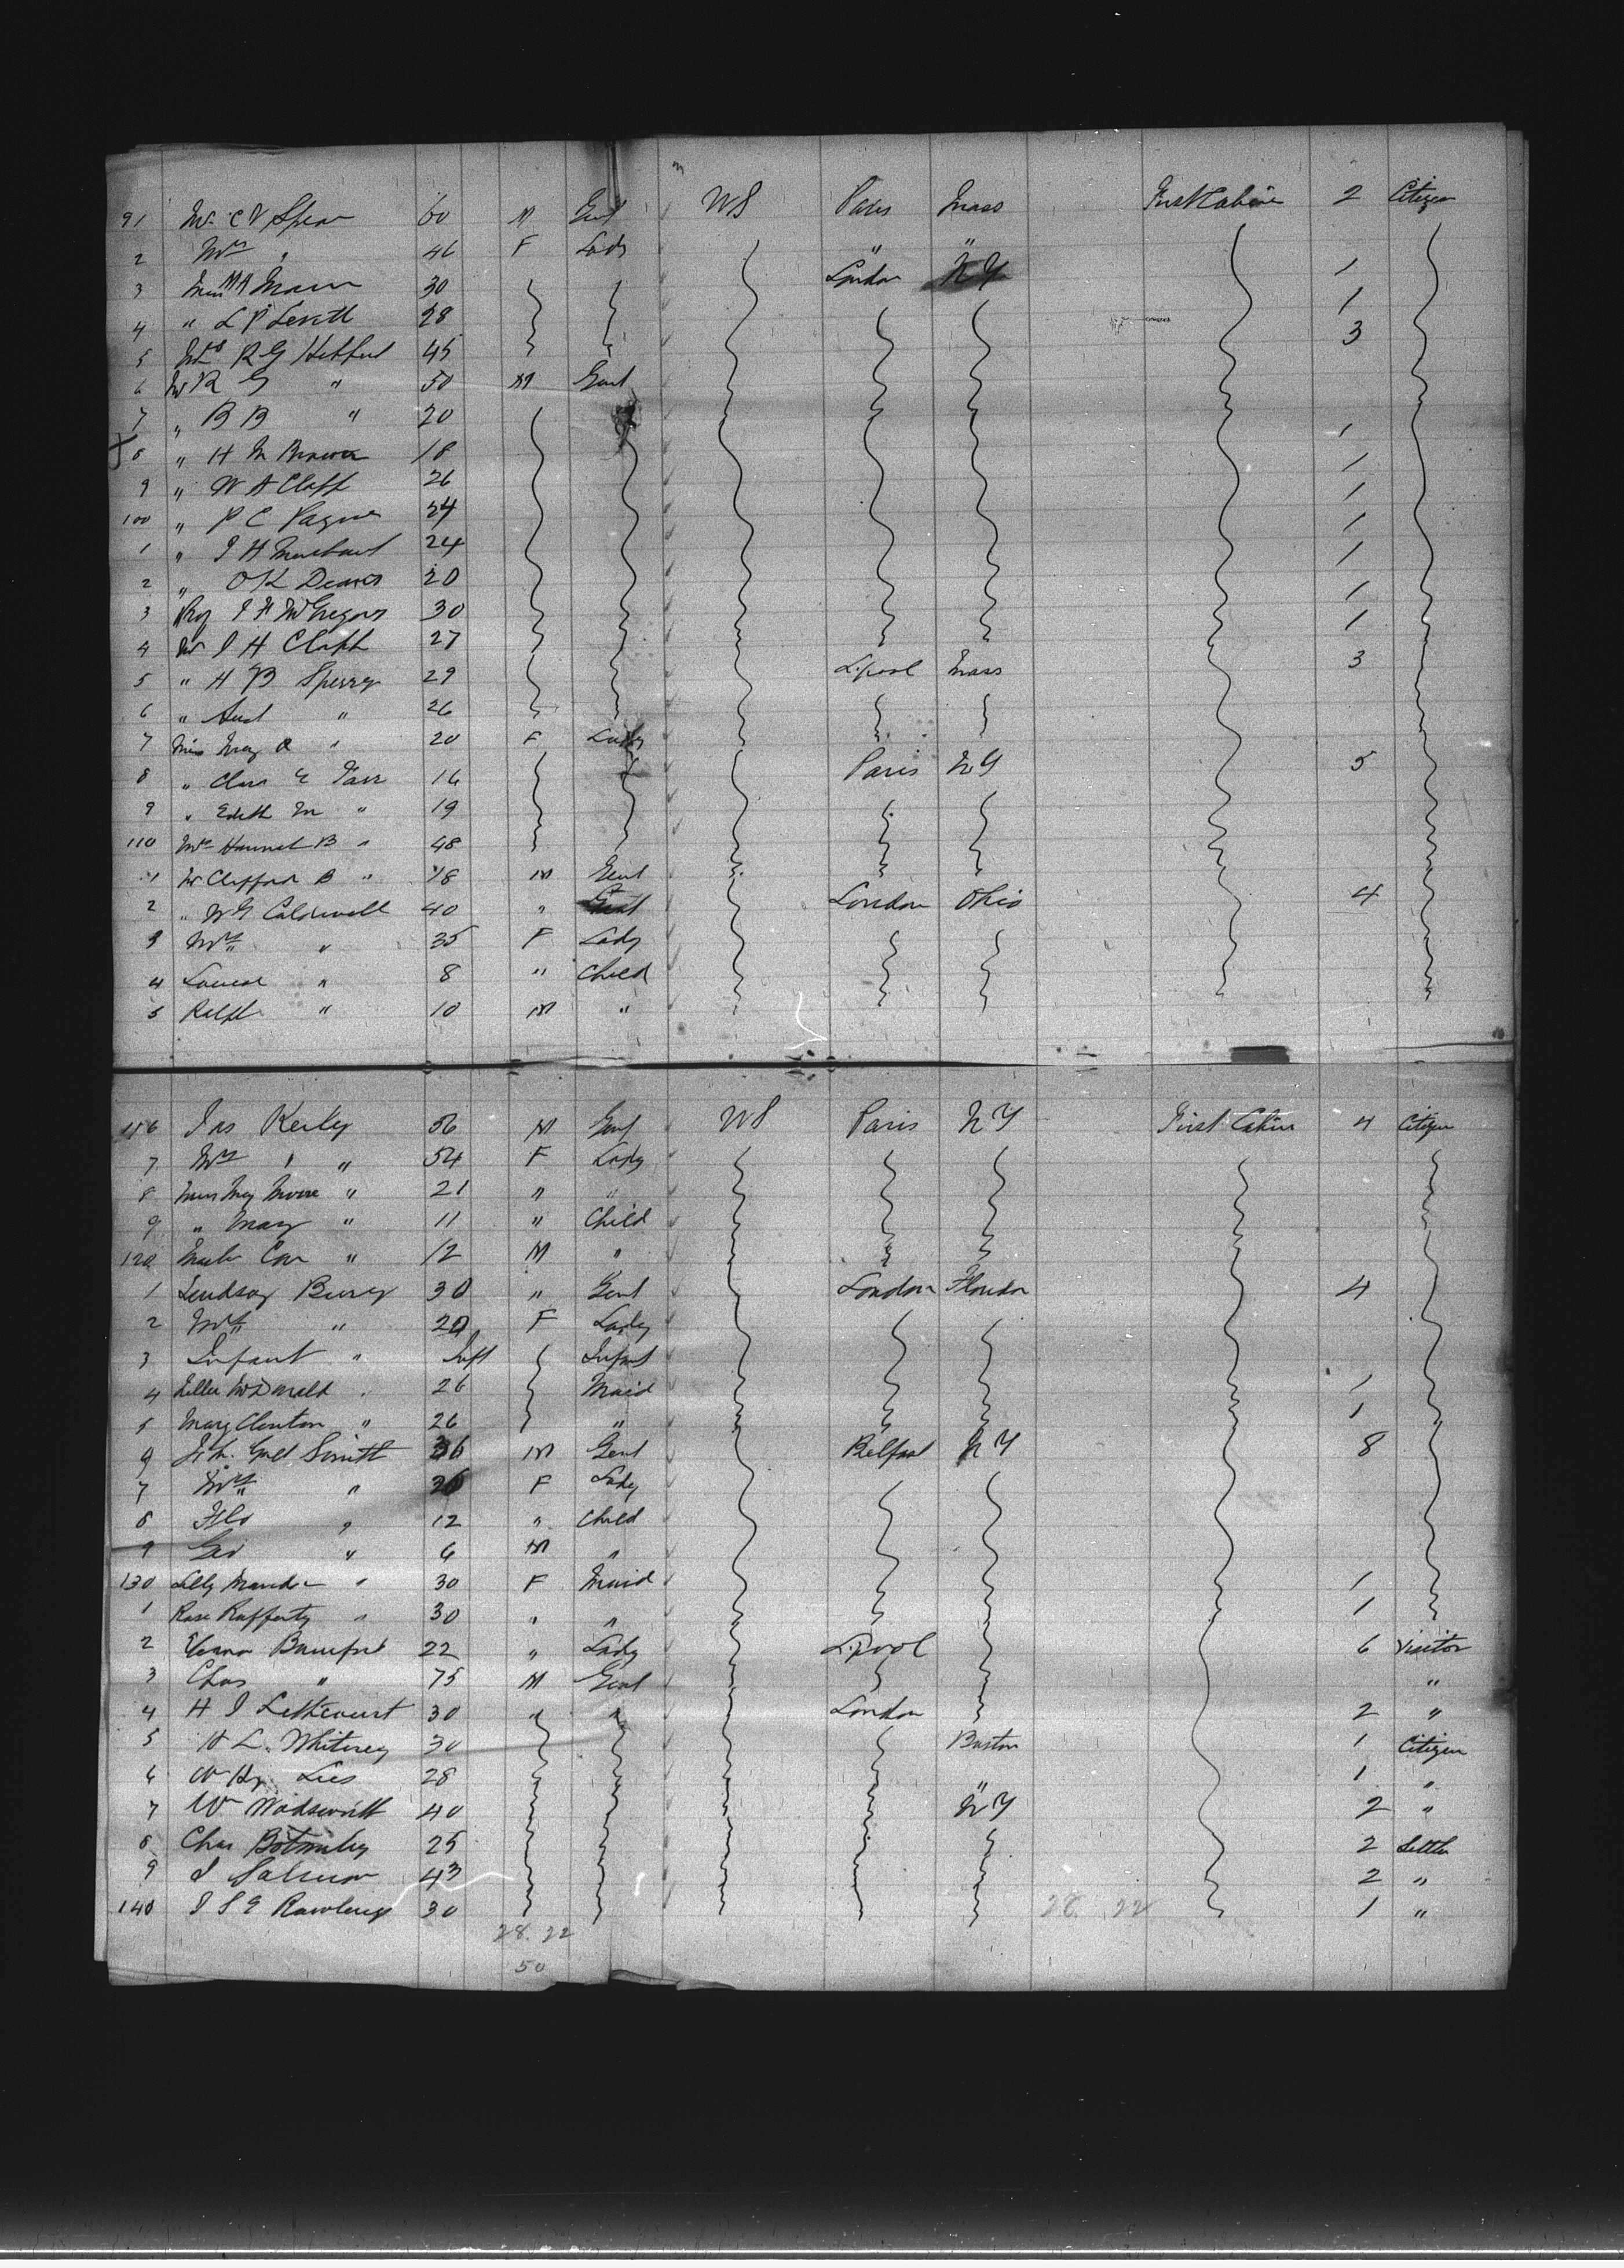 91 Mr C V Spear 60 M Gent US Paris Mass First Cabin 2 Citizen
2 Mrs " 46 F Lady " "
3 Miss M A Mann 30 London N Y 1
4 " L P Levitt 28 1
5 Mrs R G 45 3
6 Mr R G " 50 M Gent
7 " B B " 20
8 " H M Brower 18 1
9 " W A Clapp 26 1
100 " P C Payne 24 1
1 " J H 24 1
2 " O K Deaves 20 1
3 J H McGregor 30 1
4 Mr J H Clapp 27 1
5 " H B Sperry 29 L.pool Mass 3
6 " " 26
7 Miss May " 20 F Lady
8 " Clara E Farr 16 Paris N Y 5
9 " Edith M " 19
110 Mrs Hannah B " 48
1 Mr Clifford B " 18 M Gent
2 " W G Caldwell 40 " Gent London Ohio 4
3 Mrs " 35 F Lady
4 Louise " 8 " Child
5 Ralph " 10 M "
116 Jas Keiley 56 M Gent US Paris N Y First Cabin 4 Citizen
7 Mrs " " 54 F Lady
8 Miss May Moore " 21 " "
9 " Mary " 11 " Child
120 Master " 12 M "
1 Lindsay 30 " Gent London Florida 4
2 Mrs " 20 F Lady
3 Infant " Inft Infant
4 McDonald 26 Maid 1
5 Mary Clinton " 26 " 1
Smith 36 M Gent Belfast N Y 8
7 Mrs " 26 F Lady
8 Flo " 12 " Child
9 Geo " 6 M "
130 Lilly " 30 F Maid 1
1 Rose Rafferty " 30 " " 1
2 Bamford 22 " Lady L.pool 6 Visitor
3 Chas " 75 M Gent "
4 H J 30 " " London 2 "
5 H L. Whitney 30 Boston 1 Citizen
6 W Hy Lees 28 " 1 "
7 Wm Wadsworth 40 N Y 2 "
8 Chas Botomley 25 2 Settler
9 J Salmon 43 2 "
140 J S E Rawlings 30 28. 22 1 "
28. 22
50